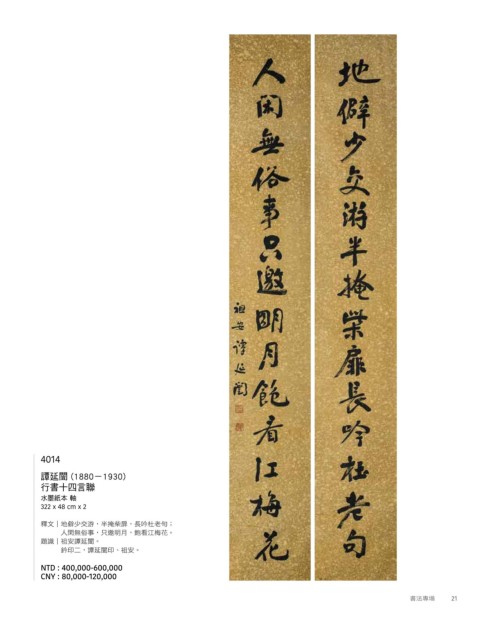 地僻少交游半掩柴扉長吟杜老句
人閑無俗事只邀明月飽看江梅花
祖安譚延闓
4014
譚延闓 (1880－1930)
行書十四言聯
水墨紙本 軸
322 x 48 cm x 2
釋文｜地僻少交游，半掩柴扉，長吟杜老句；
人閒無俗事，只邀明月，飽看江梅花。
題識｜祖安譚延闓。
鈐印二，譚延闓印、祖安。
NTD : 400,000-600,000
CNY : 80,000-120,000
書法專場 21